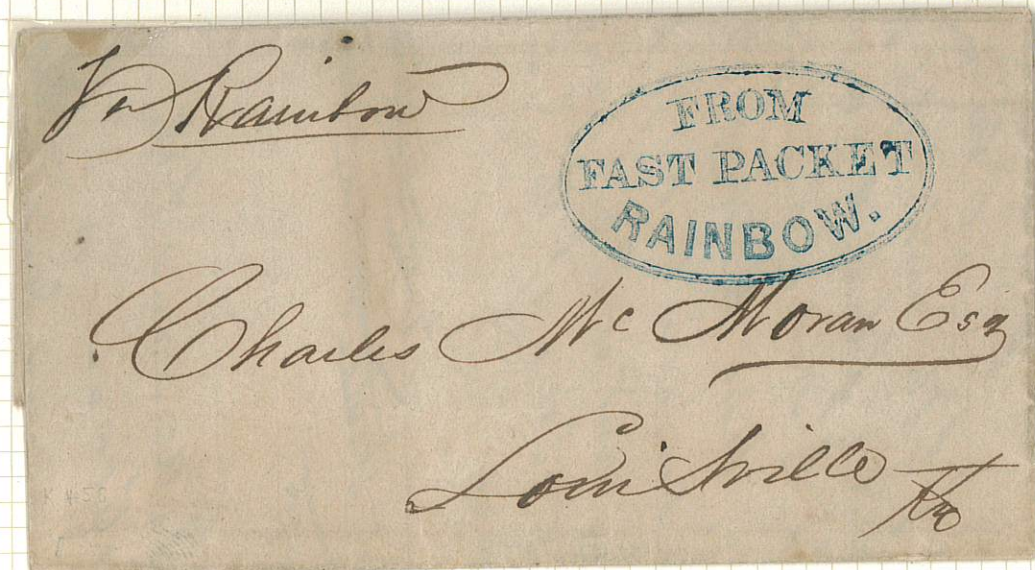 Per Rainbow
FROM
FAST PACKET
RAINBOW.
Charles Mc Moran Esq
Louisville Ky